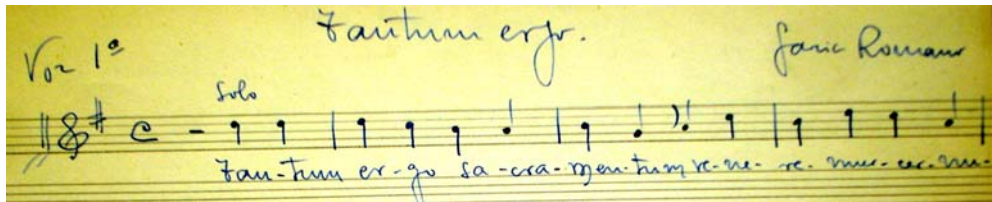 Tantum ergo.
Voz 1ª
Romano
Solo
Tan-tum er-go sa-cra-men-tum ve-ne-re-mur-cer-nu-